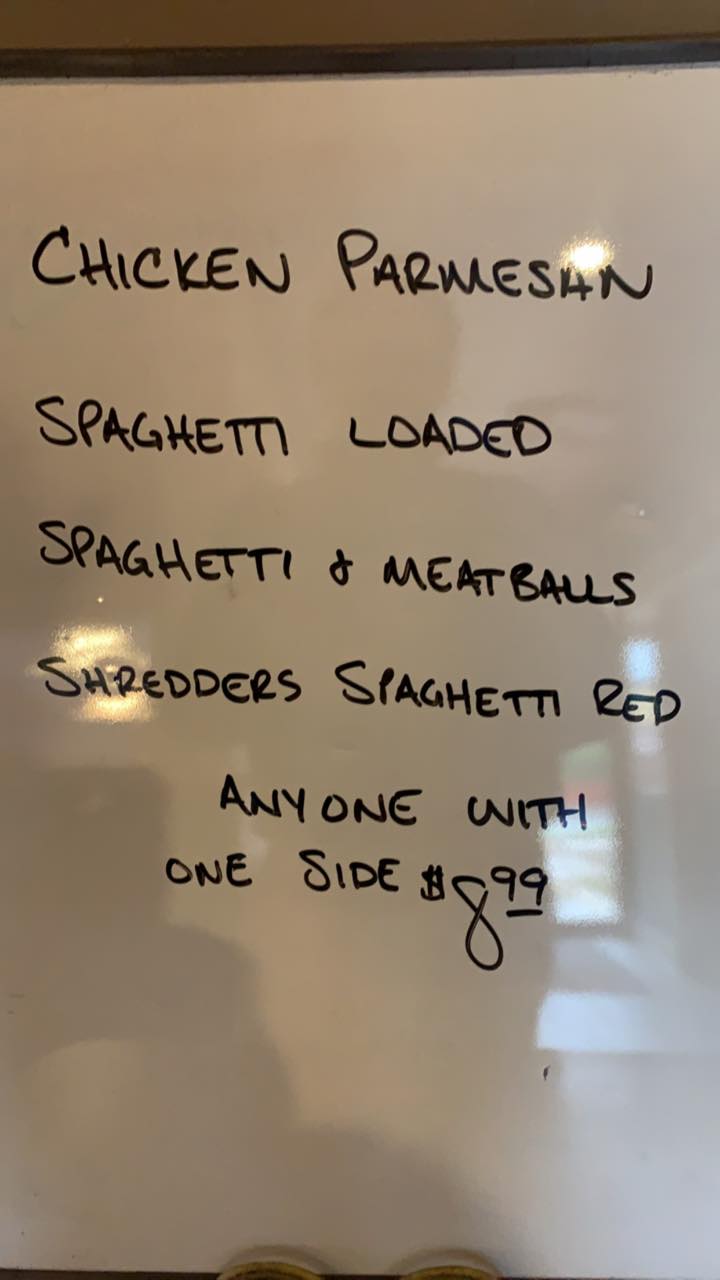 CHICKEN PARMESAN
SPAGHETTI LOADED
SPAGHETTI & MEATBALLS
SHREDDERS SPAGHETTI RED
ANYONE WITH
ONE SIDE $8.99